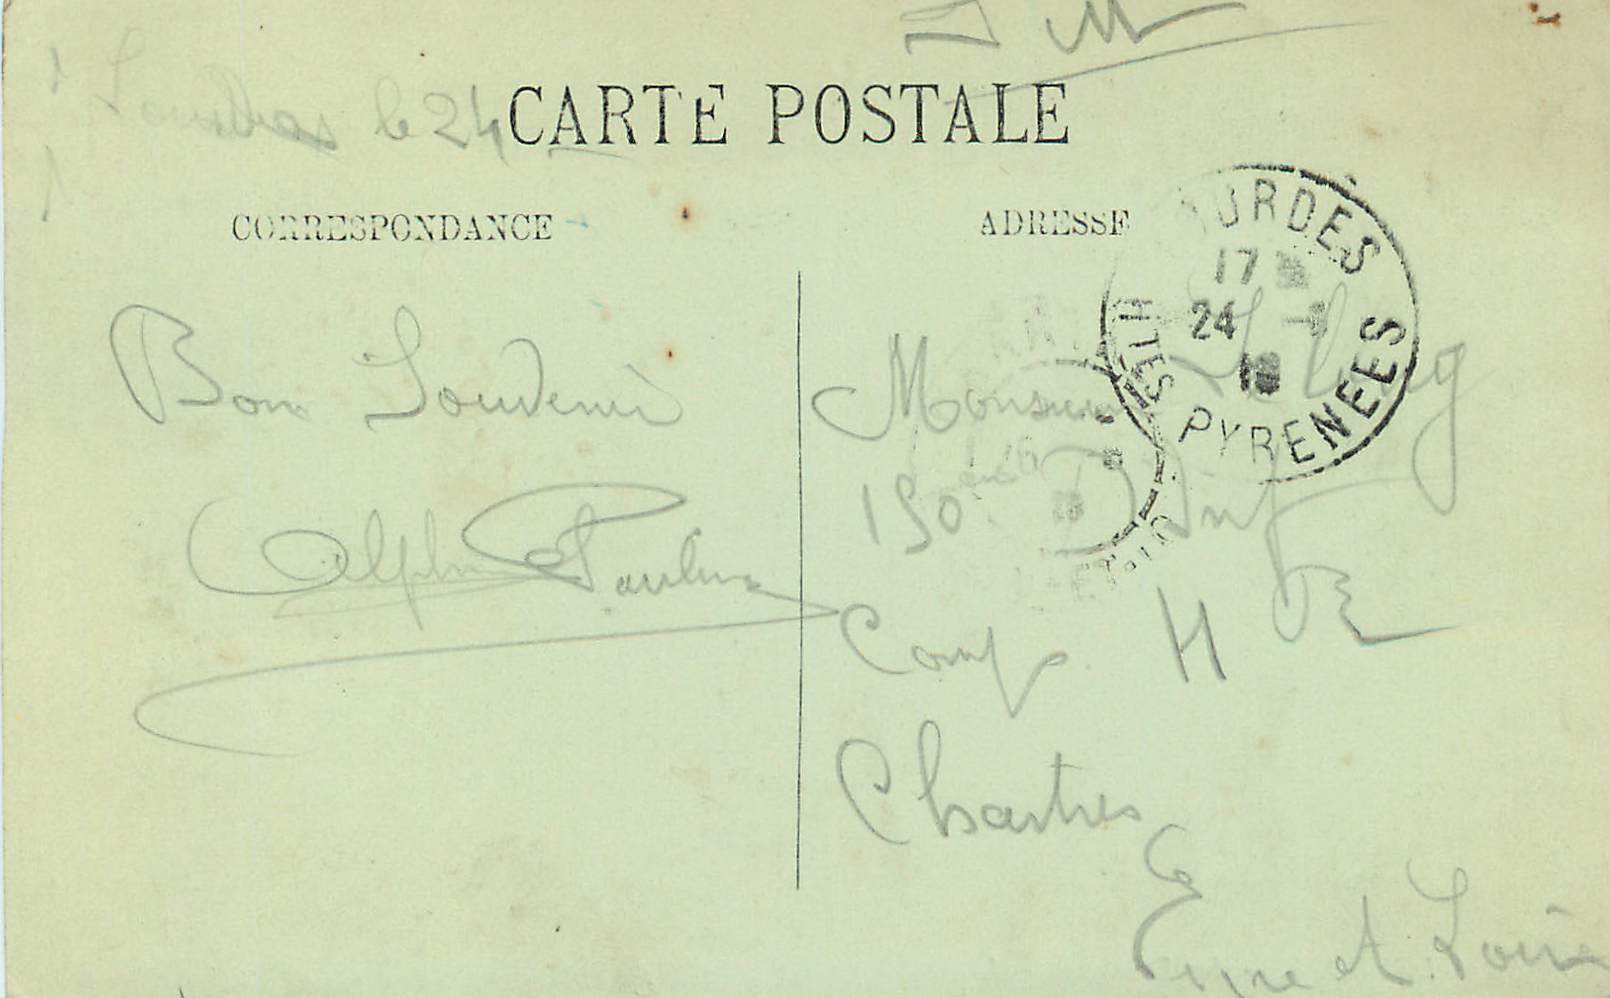 F M
Lourdes le 24
CARTE POSTALE
CORRESPONDANCE
ADRESSE
LOURDES
17
24
18
HTES PYRENEES
Bon Souvenir
Monsieur
150 Inf
Comp H
Chartres
Eure et Loire